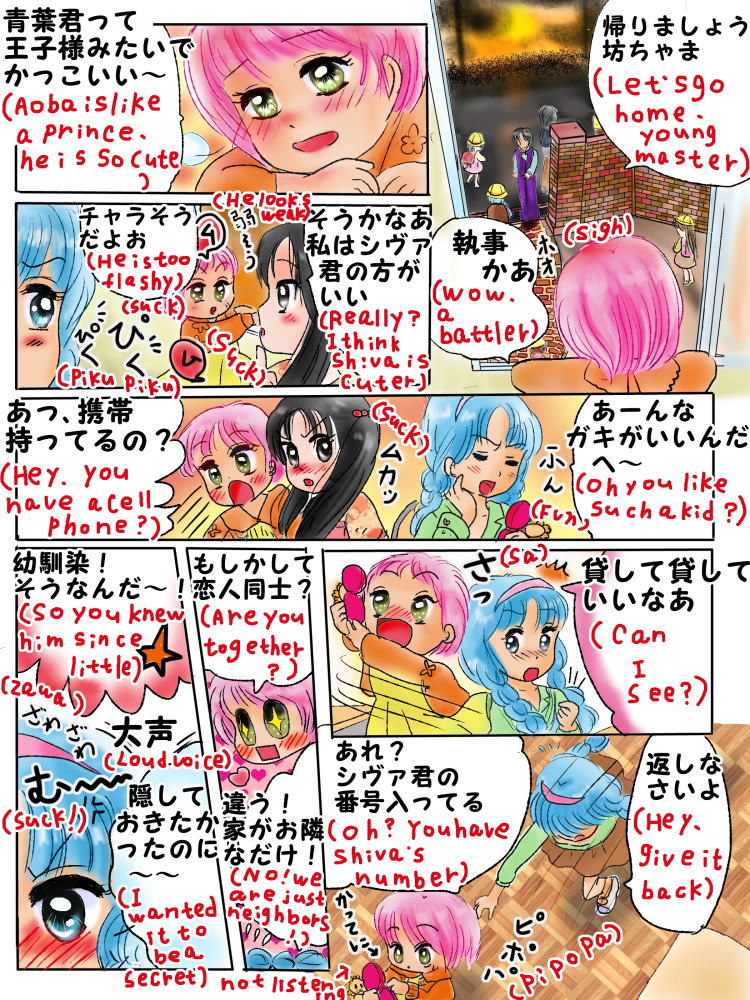 帰りましょう
坊ちゃま
(Let's go
home.
young
master)
青葉君って
王子様みたいで
かっこいい～
(Aoba is like
a prince.
he is so cute
)
執事
かあ
(wow.
a
battler)
ホォ
(sigh)
そうかなあ
私はシヴァ
君の方が
いい
(Really?
I think
Shiva is
cuter)
(He looks
weak)
弱そう
チャラそう
だよお
(He is too
flashy)
(suck)
ム
(Suck)
ぴくぴく
(Piku Piku)
あーんな
ガキがいいんだ
へ～
(Oh you like
such a kid?)
ふん
(Fun)
(Suck)
ムカッ
あっ、携帯
持ってるの？
(Hey. you
have a cell
phone?)
貸して貸して
いいなあ
(Can
I
see?)
さっ
(Sa)
返しな
さいよ
(Hey.
give it
back)
あれ？
シヴァ君の
番号入ってる
(Oh? You have
Shiva's
number)
かってに
ピポパ
(Pi po pa)
not listen
ing
もしかして
恋人同士？
(Are you
together
?)
違う！
家がお隣
なだけ！
(No! we
are just
neighbors
!)
幼馴染！
そうなんだ～！
(So you knew
him since
little)
(zawa)
ざわざわ
大声
(Loud voice)
む～～
(Suck!)
隠して
おきたか
ったのに
～～
(I
wanted
it to
be a
secret)